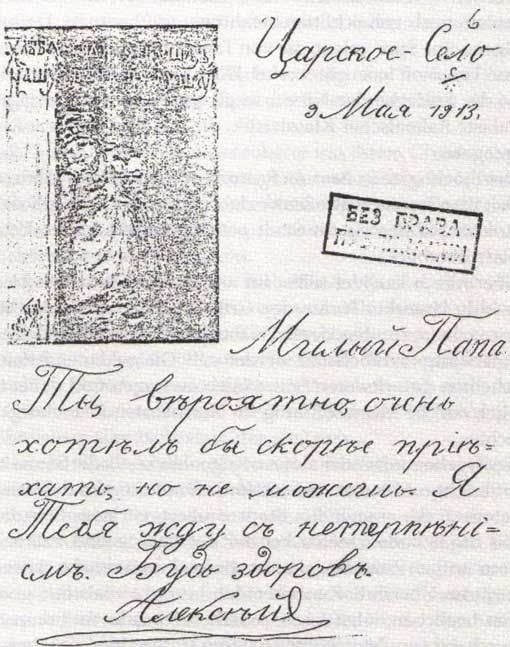 6
Царское-Село
9 Мая 1913.
БЕЗ ПРАВА
ПУБЛИКАЦИИ
Милый Папа.
Ты, вѣроятно, очень
хотѣлъ бы скорѣе пріѣ-
хать, но не можешь. Я
Тебя жду съ нетерпѣні-
емъ. Будь здоровъ.
Алексѣй